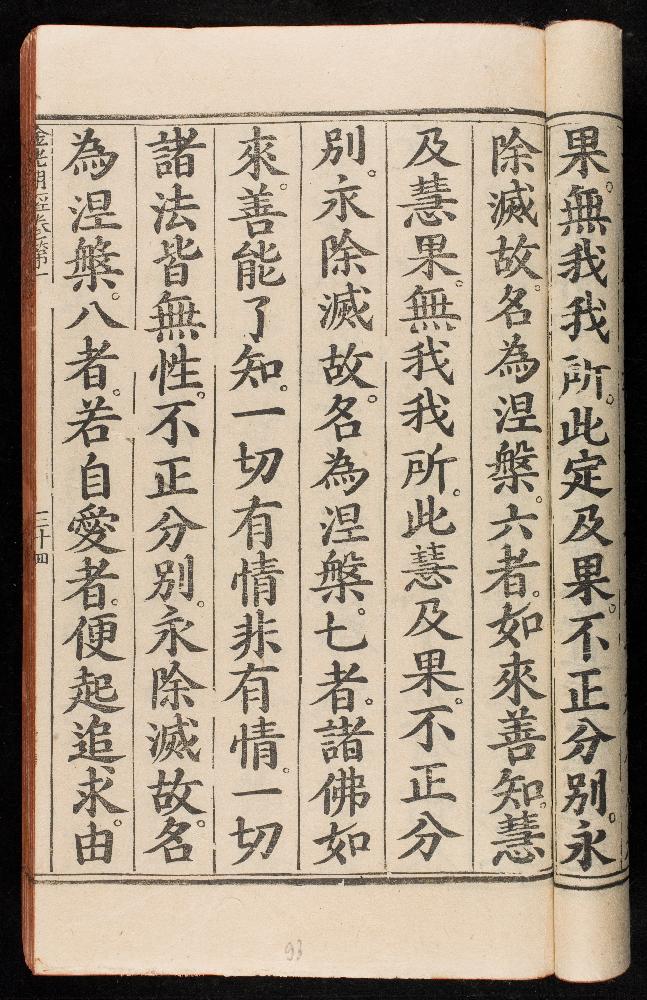 果。無我我所。此定及果。不正分別。永
除滅故。名為涅槃。六者。如來善知。慧
及慧果。無我我所。此慧及果。不正分
別。永除滅故。名為涅槃。七者。諸佛如
來。善能了知。一切有情非有情。一切
諸法皆無性。不正分別。永除滅故。名
為涅槃。八者。若自愛者。便起追求。由
金光明經卷第一
二十四
93